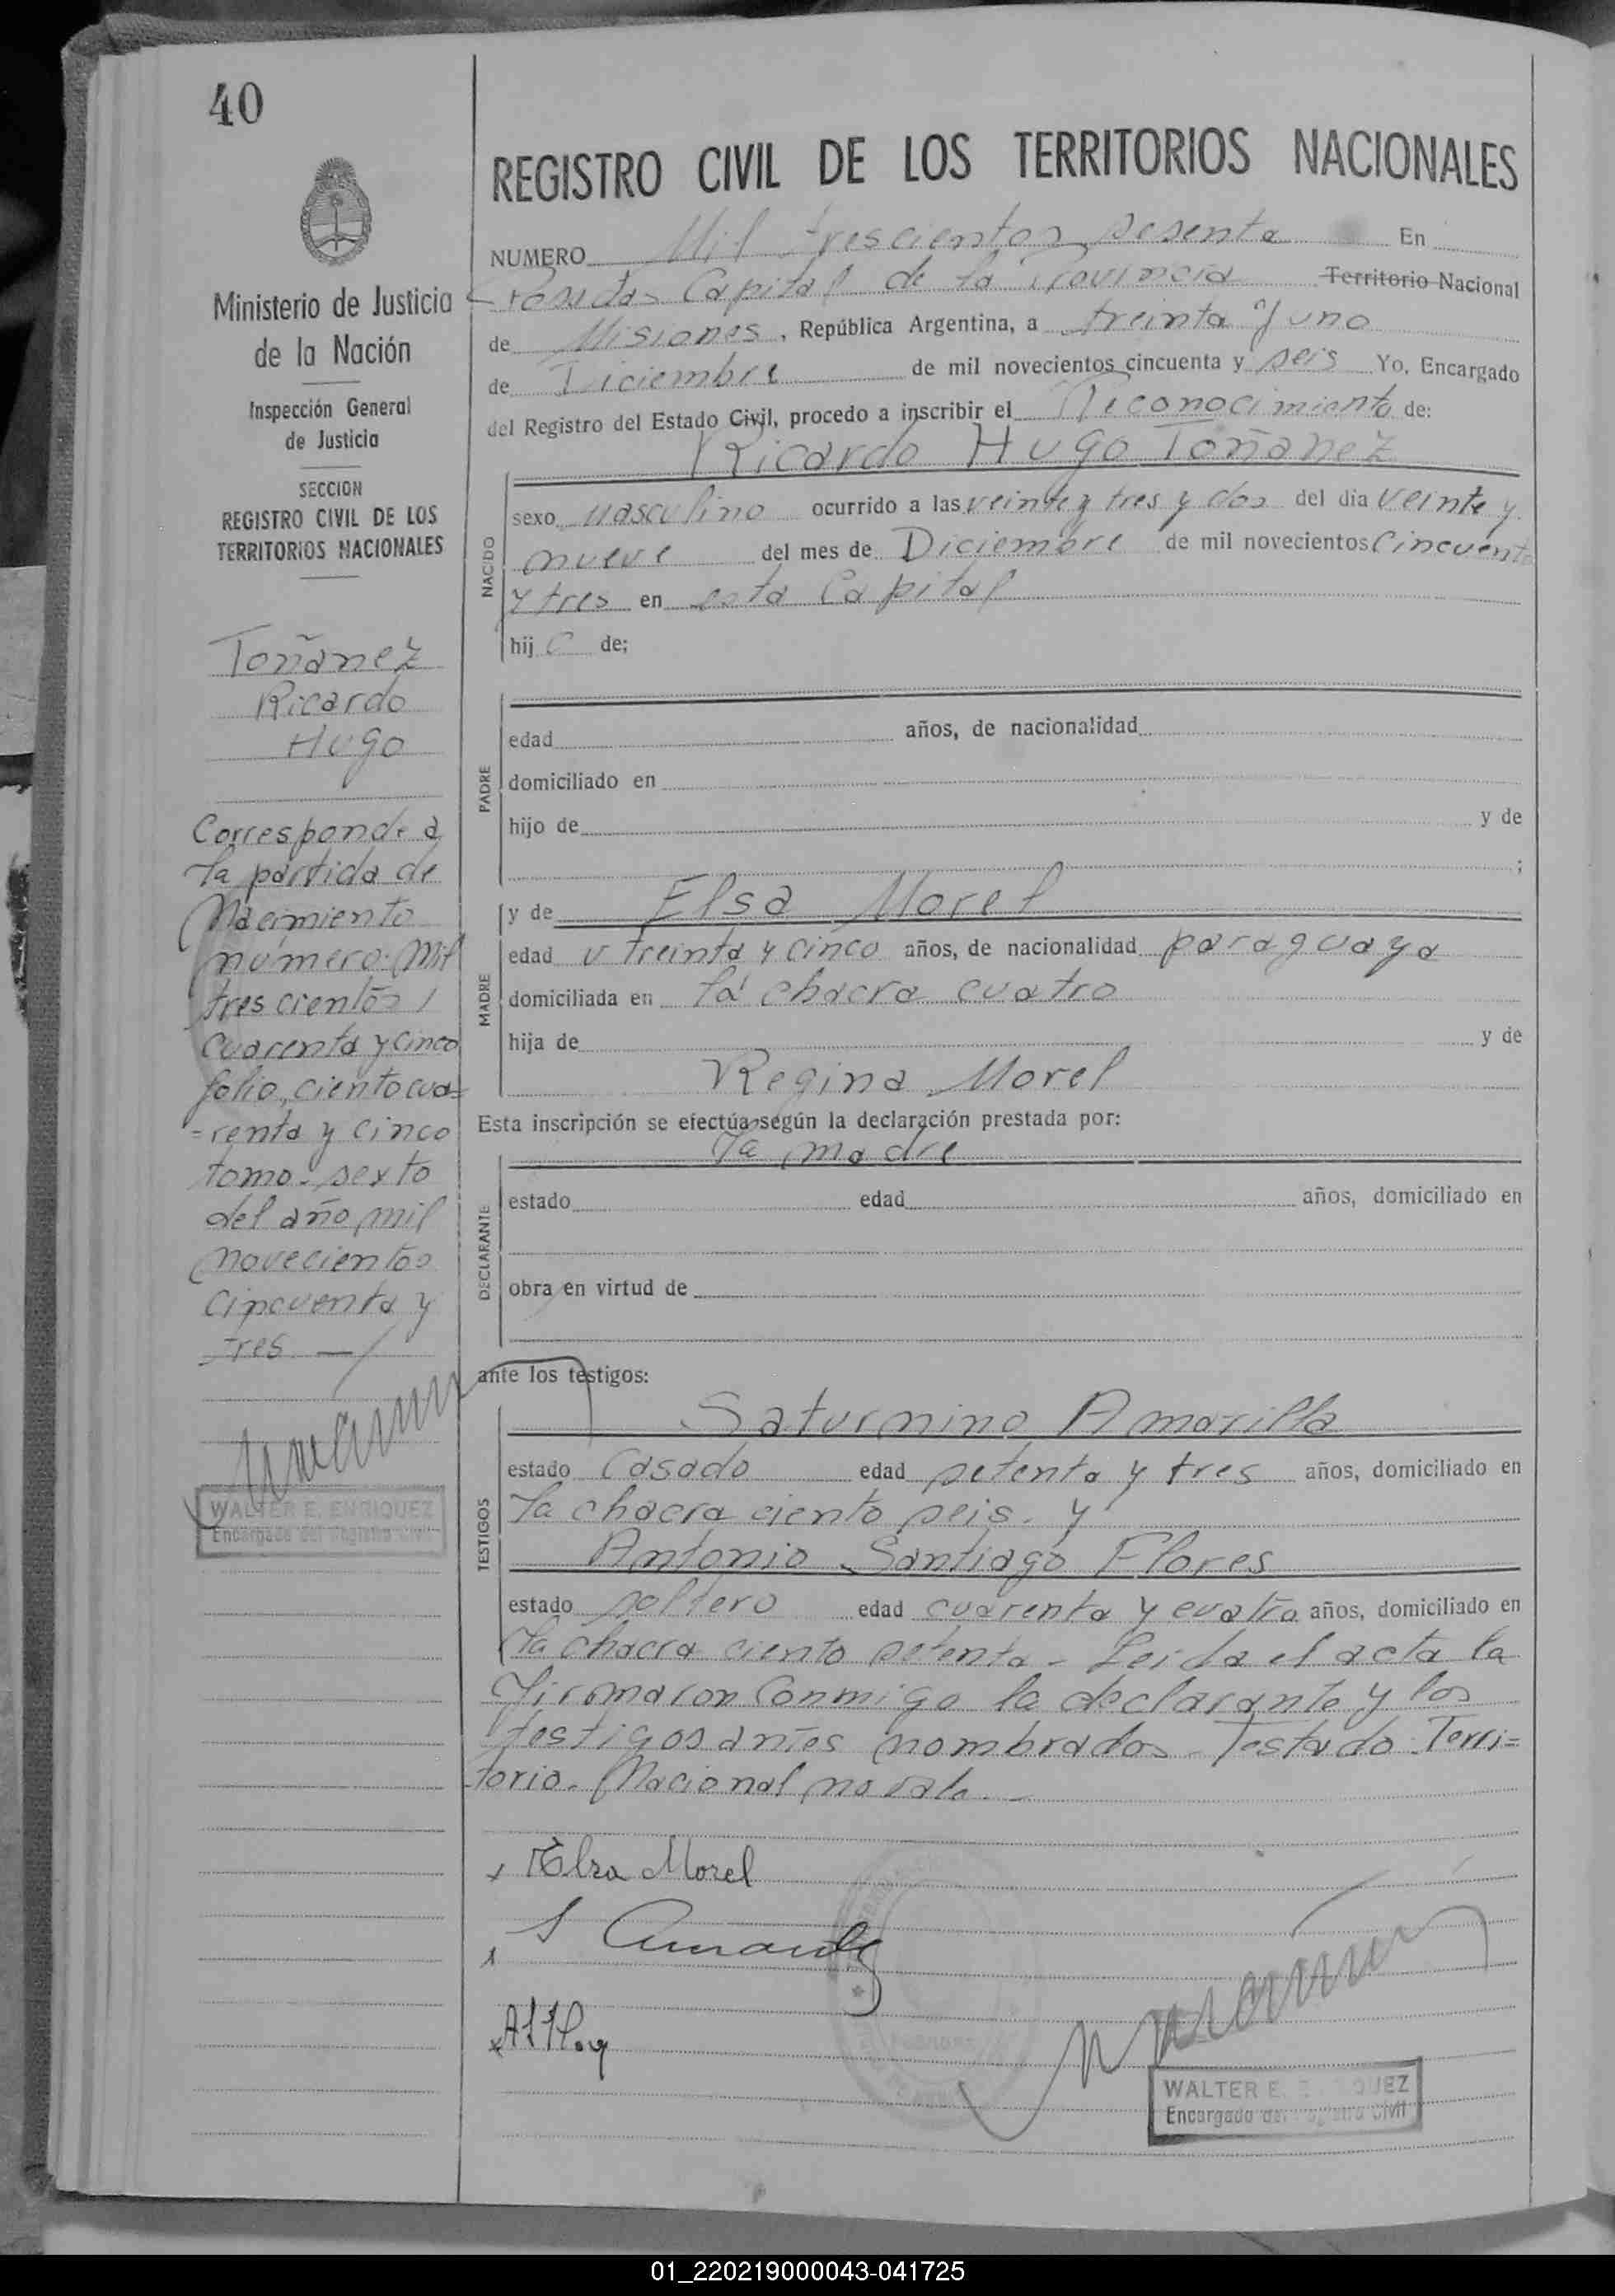 40
Ministerio de Justicia
de la Nación
Inspección General
de Justicia
SECCION
REGISTRO CIVIL DE LOS
TERRITORIOS NACIONALES
Toñanez
Ricardo
Hugo
Corresponde a
la partida de
Nacimiento
número. Mil
trescientos
cuarenta y cinco
folio, ciento cua=
=renta y cinco
tomo-sexto
del año mil
novecientos
cincuenta y
tres. —
WALTER E. ENRIQUEZ
Encargado del Registro Civil
REGISTRO CIVIL DE LOS TERRITORIOS NACIONALES
NUMERO Mil trescientos sesenta En
Posadas Capital de la Provincia Territorio Nacional
de Misiones, República Argentina, a treinta y uno
de Diciembre de mil novecientos cincuenta y seis Yo, Encargado
del Registro del Estado Civil, procedo a inscribir el Reconocimiento de:
Ricardo Hugo Toñanez
NACIDO
sexo masculino ocurrido a las veinte y tres y dos del día veinte y
nueve del mes de Diciembre de mil novecientos cincuenta
y tres en esta Capital
hij o de;
PADRE
edad años, de nacionalidad
domiciliado en
hijo de y de
;
MADRE
y de Elsa Morel
edad treinta y cinco años, de nacionalidad paraguaya
domiciliada en la chacra cuatro
hija de y de
Regina Morel
Esta inscripción se efectúa según la declaración prestada por:
la madre
DECLARANTE
estado edad años, domiciliado en
obra en virtud de
ante los testigos:
TESTIGOS
Saturnino Amarilla
estado casado edad setenta y tres años, domiciliado en
la chacra ciento seis. y
Antonio Santiago Flores
estado soltero edad cuarenta y cuatro años, domiciliado en
la chacra ciento setenta - Leida el acta la
firmaron conmigo la declarante y los
testigos antes nombrados - Testado: Terri=
torio. Nacional no vale. -
x Elsa Morel
WALTER E. E QUEZ
Encargado del Registro Civil
01_220219000043-041725